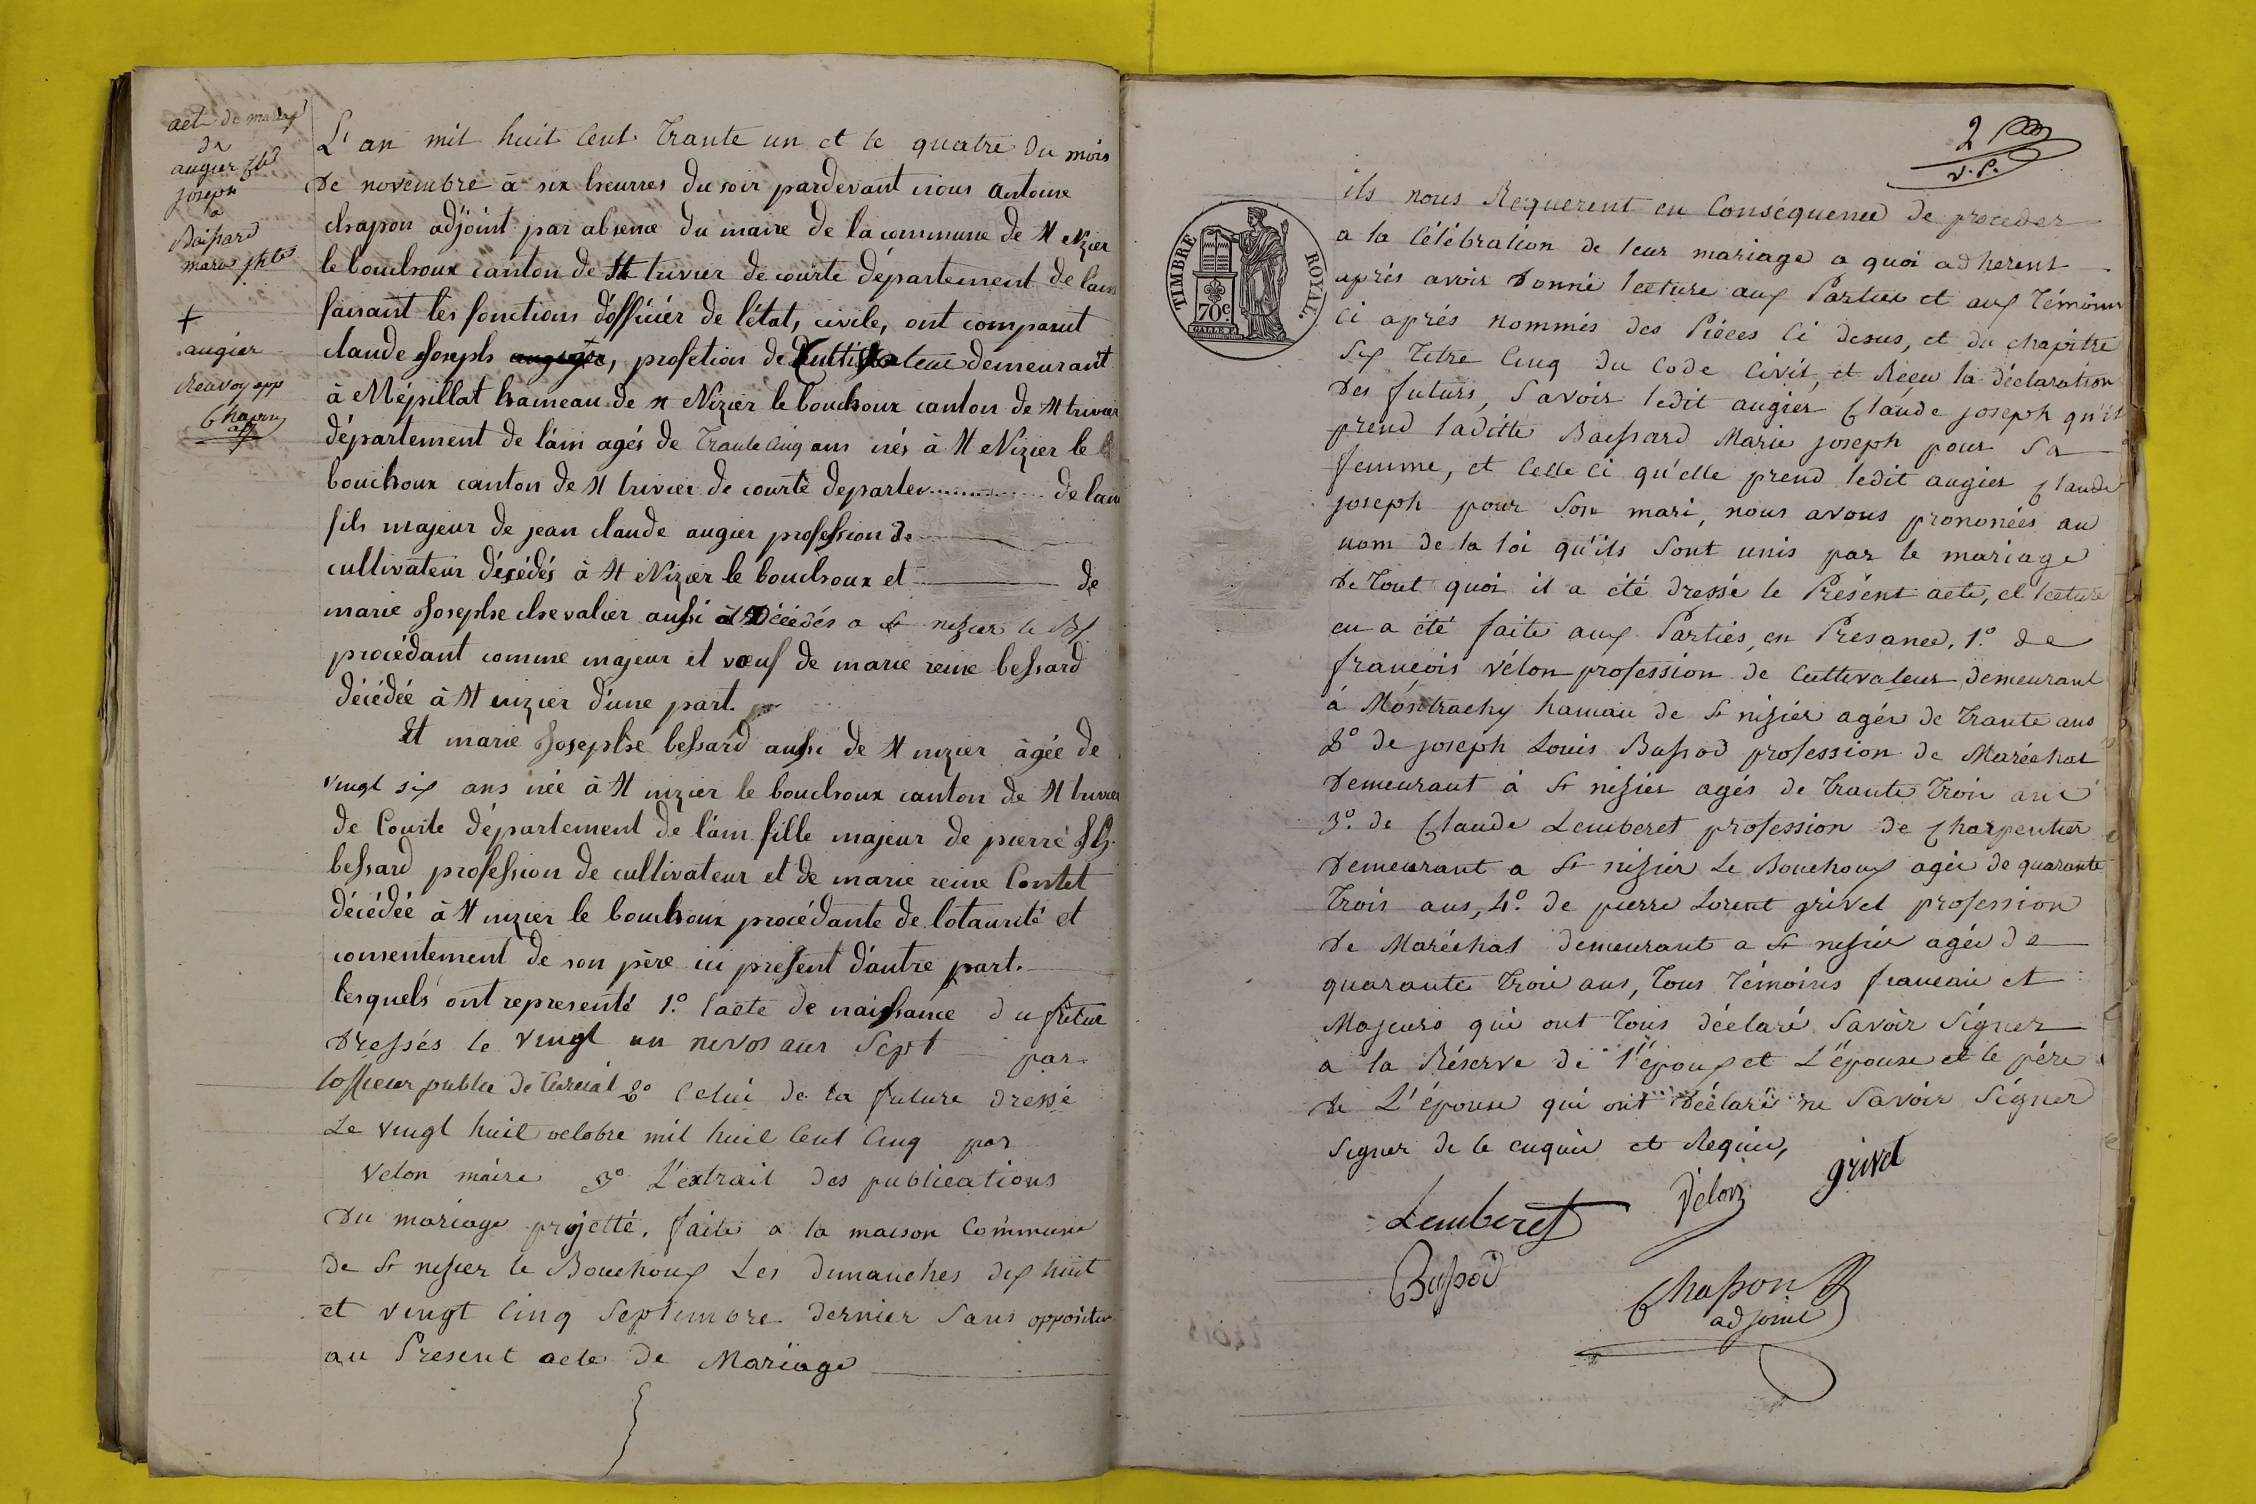 act de mariag
de
augier Cld
joseph
a
Baissard
marie jhte
+
augier
Renvoy app
Chapon
adj
L'an mil huit Cent trante un et le quatre du mois
de novembre à six heurres du soir pardevant nous antoine
chapon adjoint par absence du maire de la commune de St Nizier
le bouchoux canton de St trivier de courte département de lain
faisant les fonctions d'officier de l'état, civile, ont comparut
claude Joseph augier, profetion de Cultivateur demeurant
à Mépillat hameau de st Nizier le bouchoux canton de St trivier
département de l'ain agés de trante cinq ans nés à St Nizier le
bouchoux canton de St trivier de courte departe........... de lain
fils majeur de jean claude augier profession de
cultivateur décédés à St Nizier le bouchoux et de
marie Josephe chevalier aussi Décédés a St nizier le Bx
procédant comme majeur et vœuf de marie reine bessard
décédée à St nizier d'une part.
Et marie Josephe bessard aussi de St nizier âgée de
vingt six ans née à St nizier le bouchoux canton de St trivier
de Courte département de l'ain fille majeur de pierre Jh.
bessard profession de cultivateur et de marie reine Contet
décédée à St nizier le bouchoux procédante de lotaurité et
consentement de son père ici présent d'autre part.
lesquels ont representé 1.° lacte de naissance du futur
Dressés le vingt un nivos aun Sept par
lofficeur public de Curciat 2° Celui de la future dressé
Le vingt huit octobre mil huit Cent Cinq par
Velon maire 3° L'extrait des publications
du mariage projetté, faite a la maison Commune
de St nizier le Bouchoux Les dimanches dix huit
et vingt Cinq Septembre dernier Sans oppositon
au Present acte de Mariage
2
v. P.
TIMBRE ROYAL.
70c.
ils nous Requerent en Conséquence de proceder
a la Célébration de leur mariage a quoi adherent
aprés avoir Donné lecture aux Parties et aux Témoins
Ci aprés nommés des Pièces Ci desus, et du chapitre
Six Titre Cinq du Code Civil, et Reçu la déclaration
Des futurs, Savoir ledit augier Claude joseph qu'il
prend laditte Baissard Marie joseph pour Sa
femme, et Celle Ci qu'elle prend ledit augier Claude
joseph pour Son mari, nous avons prononcés au
nom de la loi qu'ils Sont unis par le mariage
De Tout quoi il a été dressé le Présent acte, et lecture
en a été faite aux Partiés, en Presance, 1.° de
francois vélon profession de Cultivateur demeurant
à Montrachy hamau de St nizier agée de trante ans
2° de joseph Louis Bussod profession de Maréchal
Demeurant à St nizier agés de trante Trois ans
3.° de Claude Lemberet profession de Charpentier
Demeurant a St nizier Le Bouchoux agée de quarante
Trois ans, 4.° de pierre Lorent grivel profession
de Maréchal demeurant a St nizier agée de
quarante trois ans, Tous Témoins francais et
Majeurs qui ont Tous déclaré Savoir Signer
a la Réserve de l'époux et L'épouse et le père
De L'épouse qui ont déclaré ne Savoir Signer
Signer de ce enquis et Requis,
Lemberet Vélon grivel
Bussod Chapon
adjoint